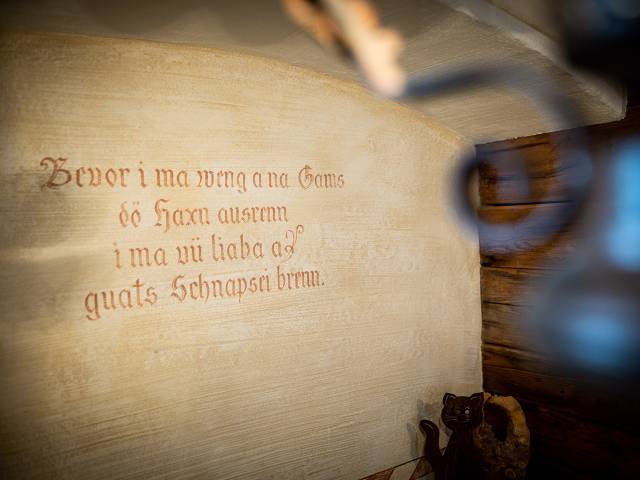 Bevor i ma weng a na Gams
dö Haxn ausrenn
i ma vü liaba a
guats Schnapsei brenn.